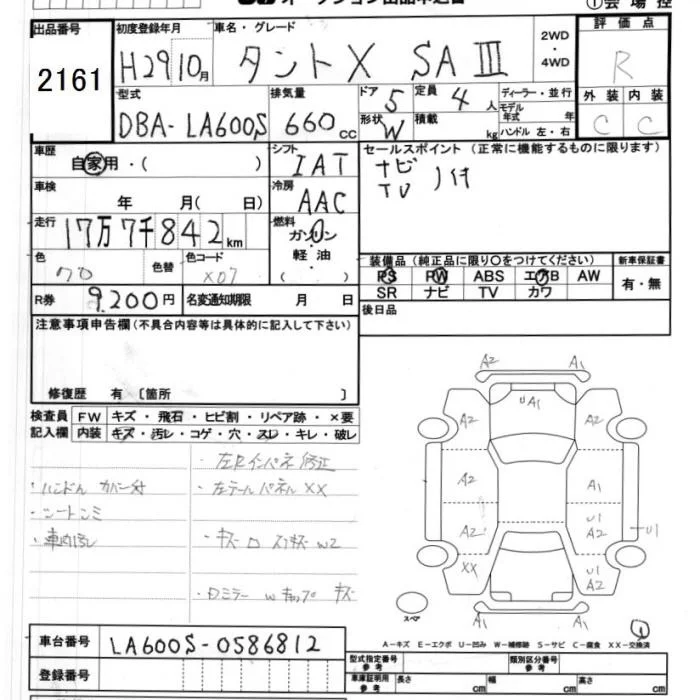 ①会場控
出品番号
2161
初度登録年月
H29 10月
車名・グレード
タントX SAⅢ
2WD・4WD
評価点
R
型式
DBA-LA600S
排気量
660cc
ドア
5
定員
4人
ディーラー・並行
モデル年式 年
形状
W
積載
kg
ハンドル 左・右
外装
内装
C
C
車歴
自家用・( )
シフト
IAT
セールスポイント (正常に機能するものに限ります)
ナビ
TV
付
車検
年 月( 日)
冷房
AAC
走行
17万7千842km
燃料
ガソリン
軽油
( )
色
クロ
色替
色コード
X07
装備品 (純正品に限り○をつけてください)
新車保証書
PS PW ABS エアB AW
SR ナビ TV カワ
有・無
R券
9,200円
名変通知期限 月 日
後日品
注意事項申告欄 (不具合内容等は具体的に記入して下さい)
修復歴 有 〔箇所 〕
検査員記入欄
FW キズ・飛石・ヒビ割・リペア跡・×要
内装 キズ・汚レ・コゲ・穴・スレ・キレ・破レ
・左Rインパネ修正
・ハンドル カバー付
・左テールパネルXX
・シートシミ
・車内汚レ
・Dミラー W キャップ キズ
A2 A1
U A1
A2 A2
A2 A1
A2 U1 A2
U1
XX U1 A2
A1 A1
スペア
A-キズ E-エクボ U-凹み W-補修跡 S-サビ C-腐食 XX-交換済
車台番号
LA600S-0586812
登録番号
型式指定番号
参考
類別区分番号
参考
車庫証明用
参考
長さ cm
幅 cm
高さ cm